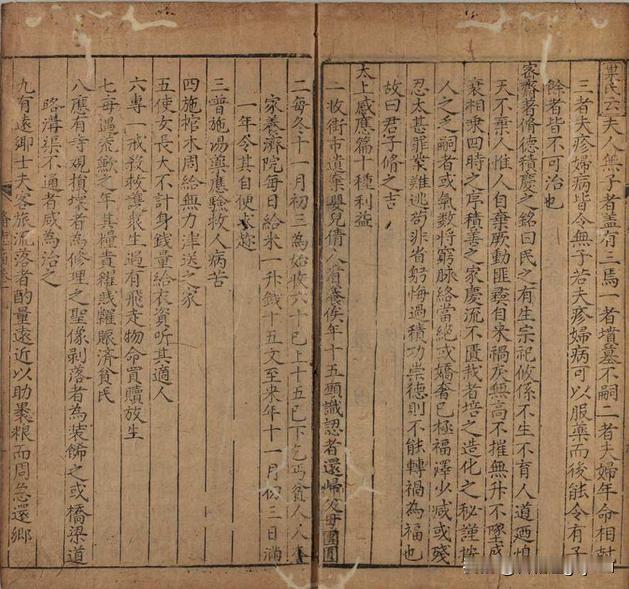 巢氏云夫人無子者蓋有三焉一者墳墓不嗣二者夫婦年命相尅
三者夫疹婦病皆令無子若夫疹婦病可以服藥而後能令有子
餘者皆不可治也
客齋脩德積慶之銘曰民之有生宗祀攸係不生不育人道廼怕
天不棄人惟人自棄厥動匪彝自來禍灰無高不摧無升不墜盛
衰相乘四時之序積善之家慶流不匱栽者培之造化之秘謹按
人之乏嗣者或氣数將窮脉絡當絶或嬌奢已極福澤少咸或殘
忍太甚罪業難逃苟非省躬悔過積功崇德則不能轉禍為福也
故曰君子脩之吉
太上感應篇十種利益
一收街市遺棄嬰兒倩人看養俟年十五願識認者還歸父母團圓
二每冬十一月初三為始收六十已上十五已下乞丐貧人入
家養濟院每日給米一升錢十五文至来年十一月初三日滿
一年令其自便求趂
三普施湯藥應驗救人病苦
四施棺木周給無力津送之家
五使女長大不計身錢量給衣資听其適人
六專一戒殺救護衆生過有飛走物命買贖放生
七每遇荒歉之年其糧貴糴賎糶賑濟貧民
八應有寺觀損壊者為修理之聖像剥落者為装飾之或橋梁道
路溝渠不通者咸為治之
九有遠鄉士夫客旅流落者酌量遠近以助裹粮而周急還鄉